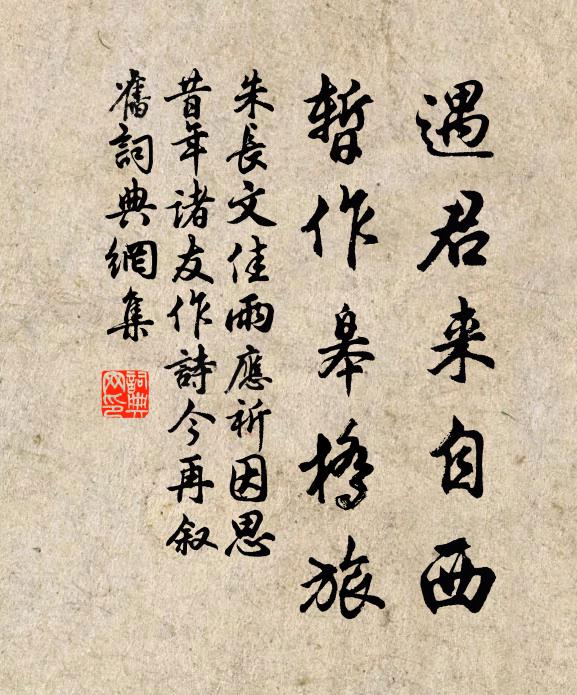 遇君来自西
暫作皋橋旅
朱長文佳雨應祈因思
昔年諸友作詩今再叙
舊詞典網集
詞典
网印